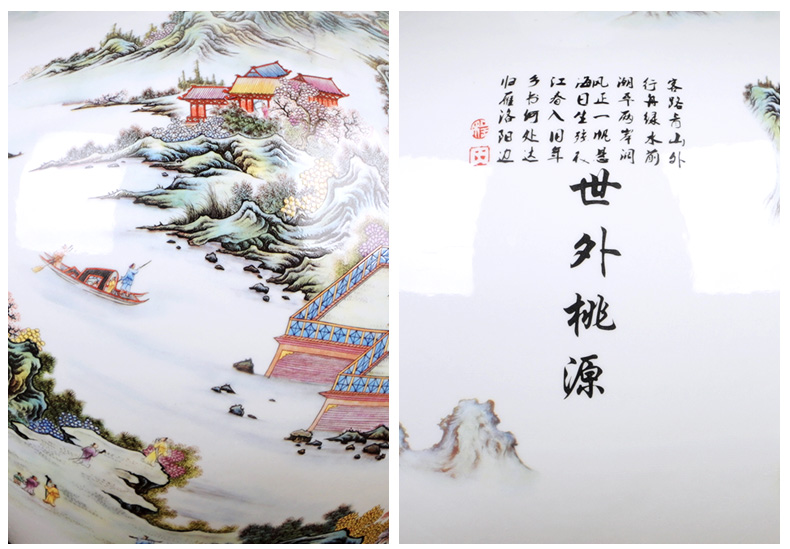 客路青山外
行舟绿水前
潮平两岸阔
风正一帆悬
海日生残夜
江春入旧年
乡书何处达
归雁洛阳边
世外桃源